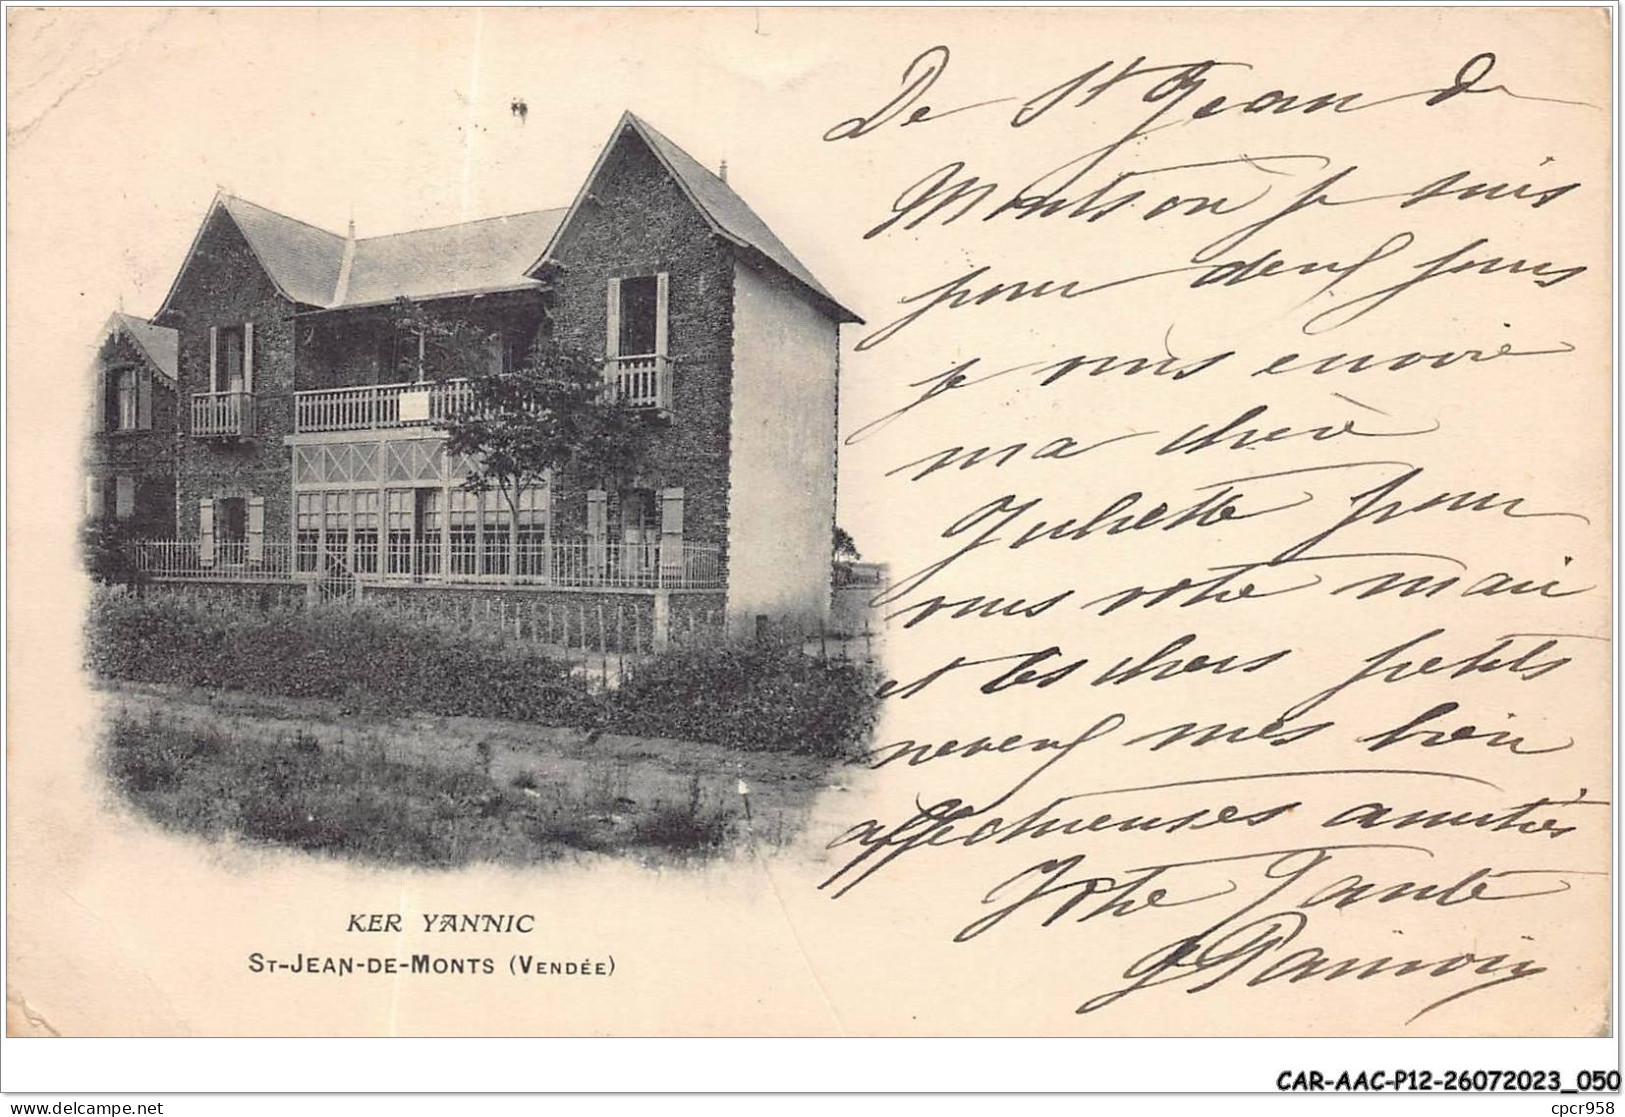 De St Jean de
Monts où je suis
pour deux jours
je vous envoie
ma chère
Juliette pour
vous votre mari
et les chers petits
neveux mes bien
affectueuses amitiés
Votre Tante
KER YANNIC
ST-JEAN-DE-MONTS (VENDÉE)
CAR-AAC-P12-26072023_050
delcampe.net
cpcr958